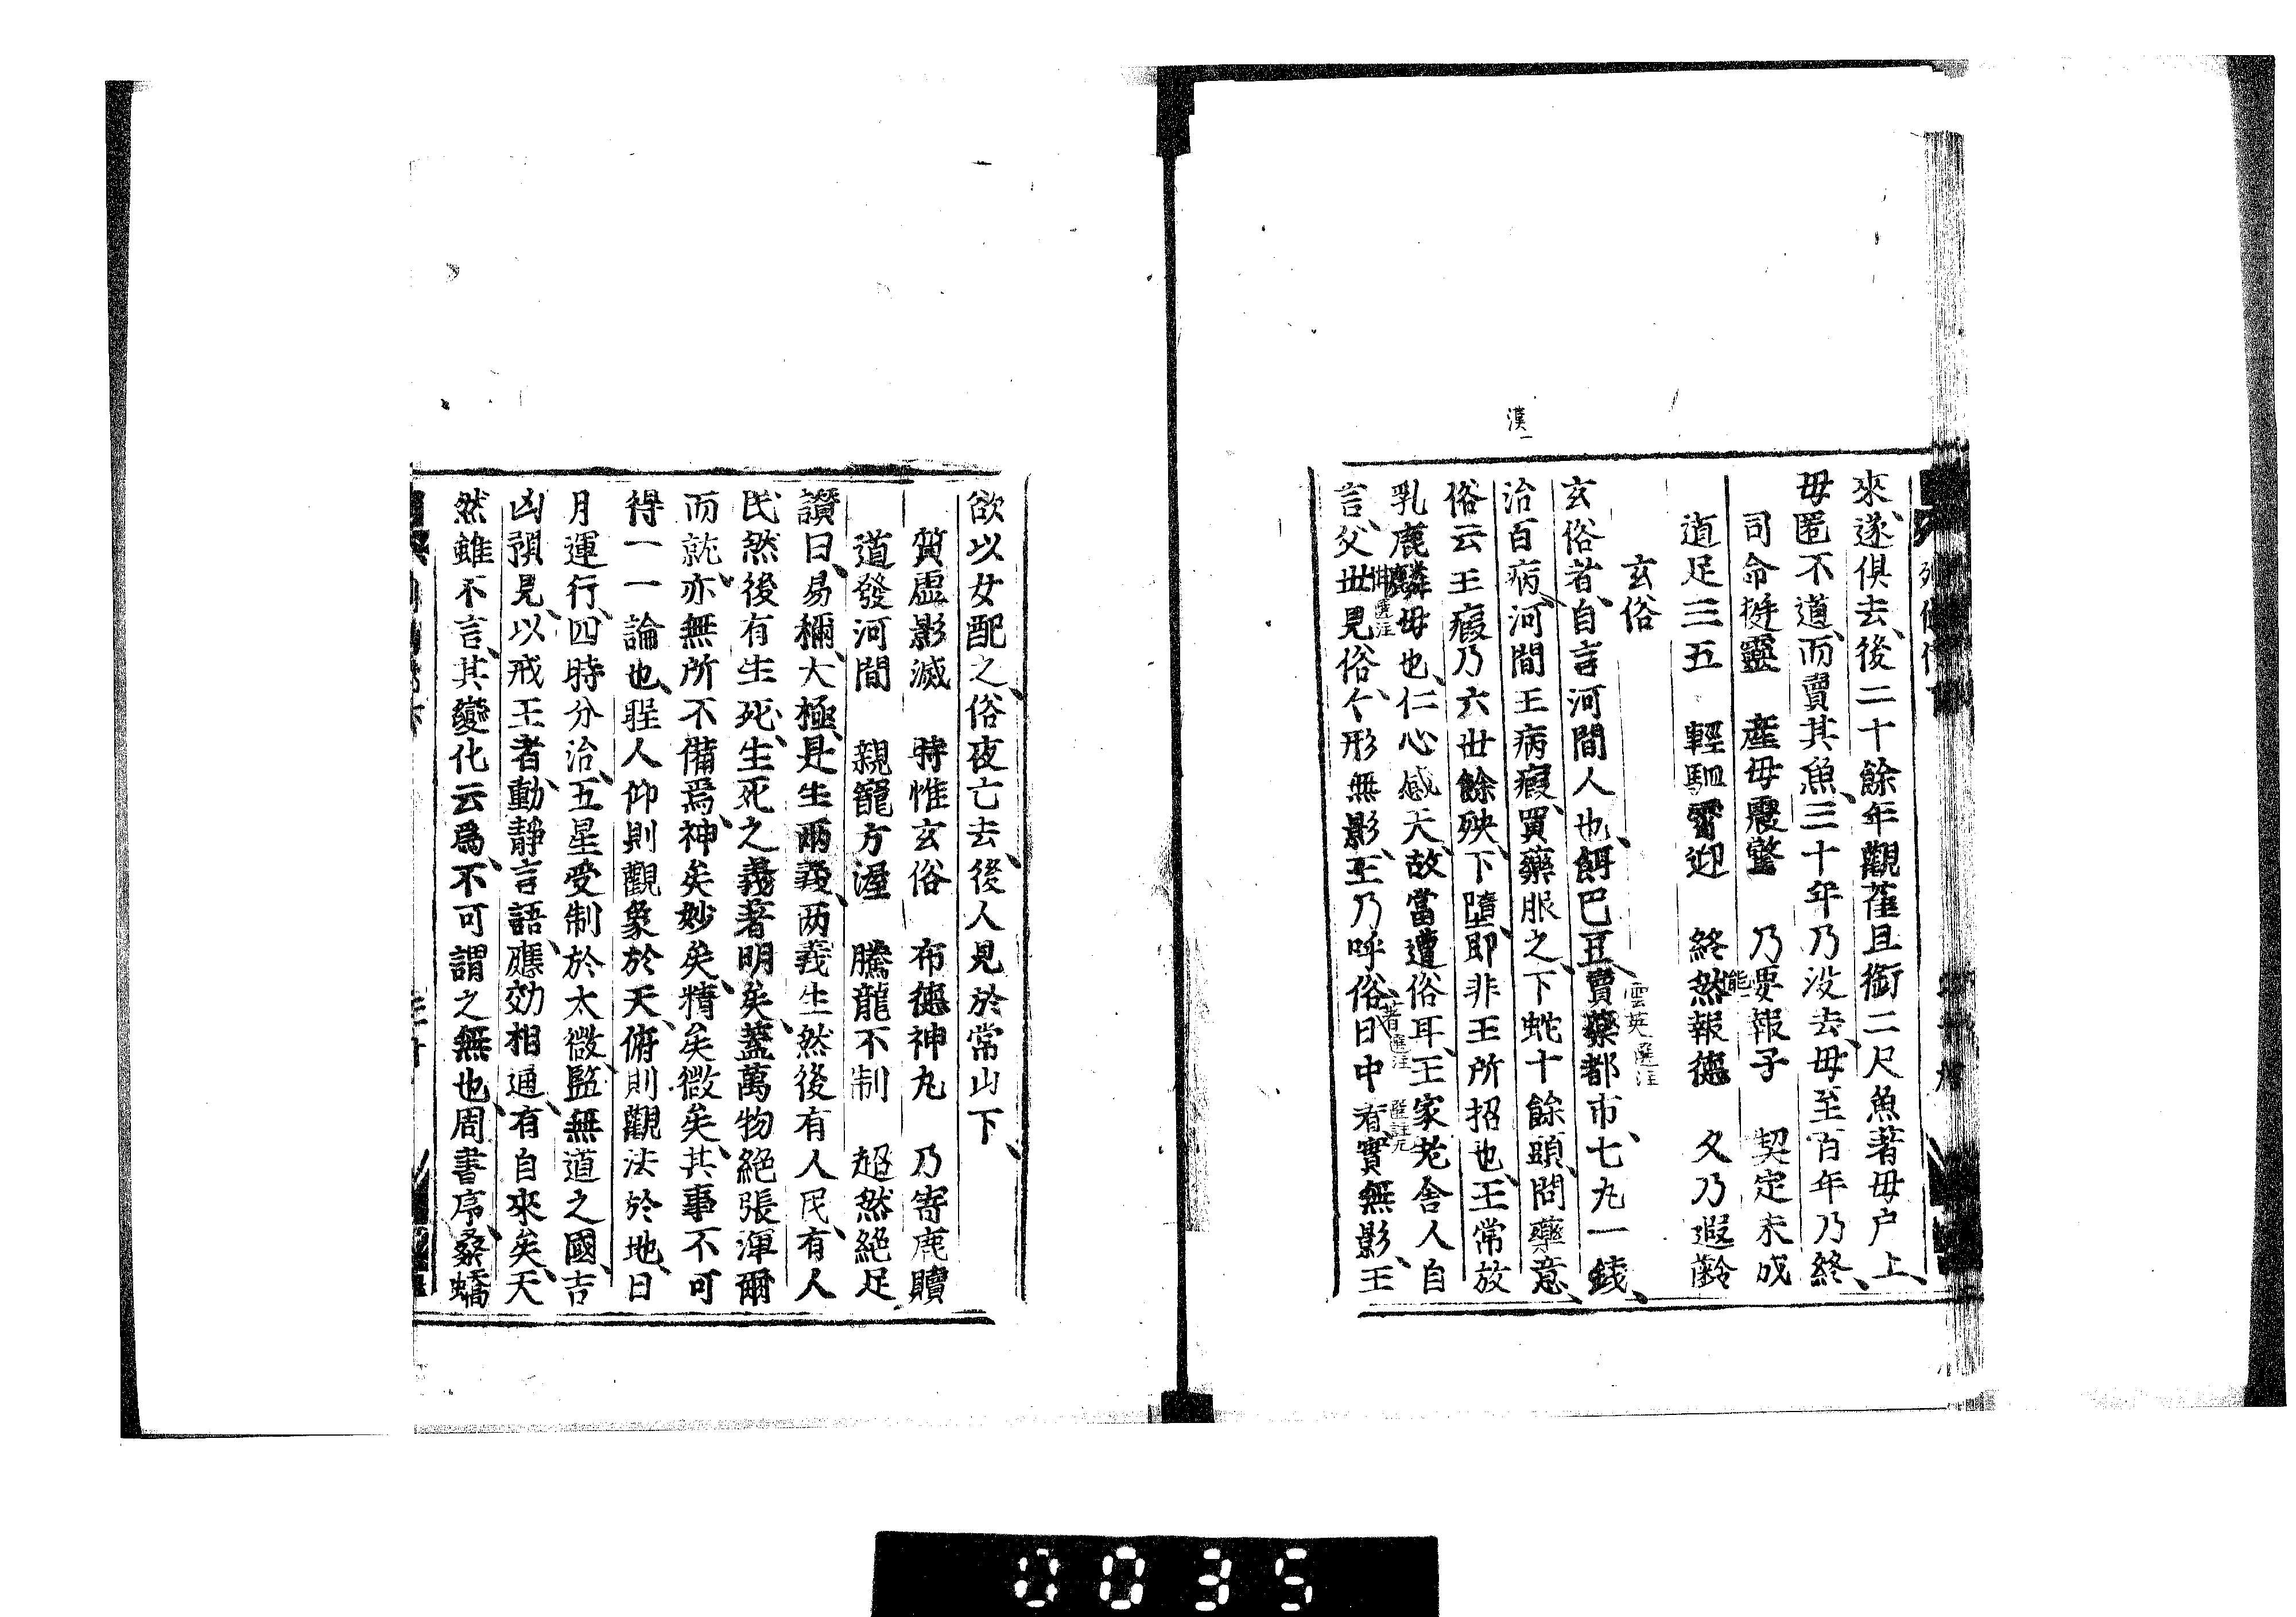 漢
來遂俱去後二十餘年觀雈且銜二尺魚著毋户上
毋匿不道而賣其魚三十年乃没去毋至百年乃終
司命挺靈 産毋震驚 乃要報子 契定未成
道足三五 輕駟霄迎 終然報德 久乃遐齡
能
玄俗
雲英 匯注
玄俗者自言河間人也餌巴豆賣藥都市七九一錢
治百病河間王病瘕買藥服之下蛇十餘頭問藥意
俗云王瘕乃六丗餘殃下墮即非王所招也王常放
乳鹿麟毋也仁心感天故當遭俗耳王家老舍人自
言父丗見俗俗形無影王乃呼俗日中看實無影王
欲以女配之俗夜亡去後人見於常山下
質虛影滅 時惟玄俗 布德神丸 乃寄鹿贖
道發河間 親寵方渥 騰龍不制 超然絕足
讚曰易稱大極是生兩義两義生然後有人民有人
民然後有生死生死之義著明矣蓋萬物絕張渾爾
而就亦無所不備焉神矣妙矣精矣微矣其事不可
得一一論也聖人仰則觀象於天俯則觀法於地日
月運行四時分治五星受制於太微監無道之國吉
凶預見以戒王者動靜言語應効相通有自來矣天
然雖不言其變化云爲不可謂之無也周書序桑蟜
0035